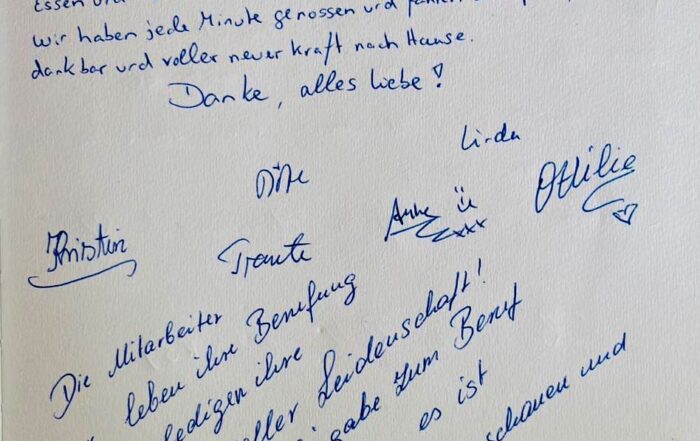 Essen und
wir haben jede Minute genossen und fahren
dankbar und voller neuer Kraft nach Hause.
Danke, alles Liebe!
Linda
Dörte
Ottilie
Anke
xxx
Kristin
Traute
Die Mitarbeiter
leben ihre Berufung
ledigen ihre
voller Leidenschaft!
gabe zum Beruf
es ist
schauen und